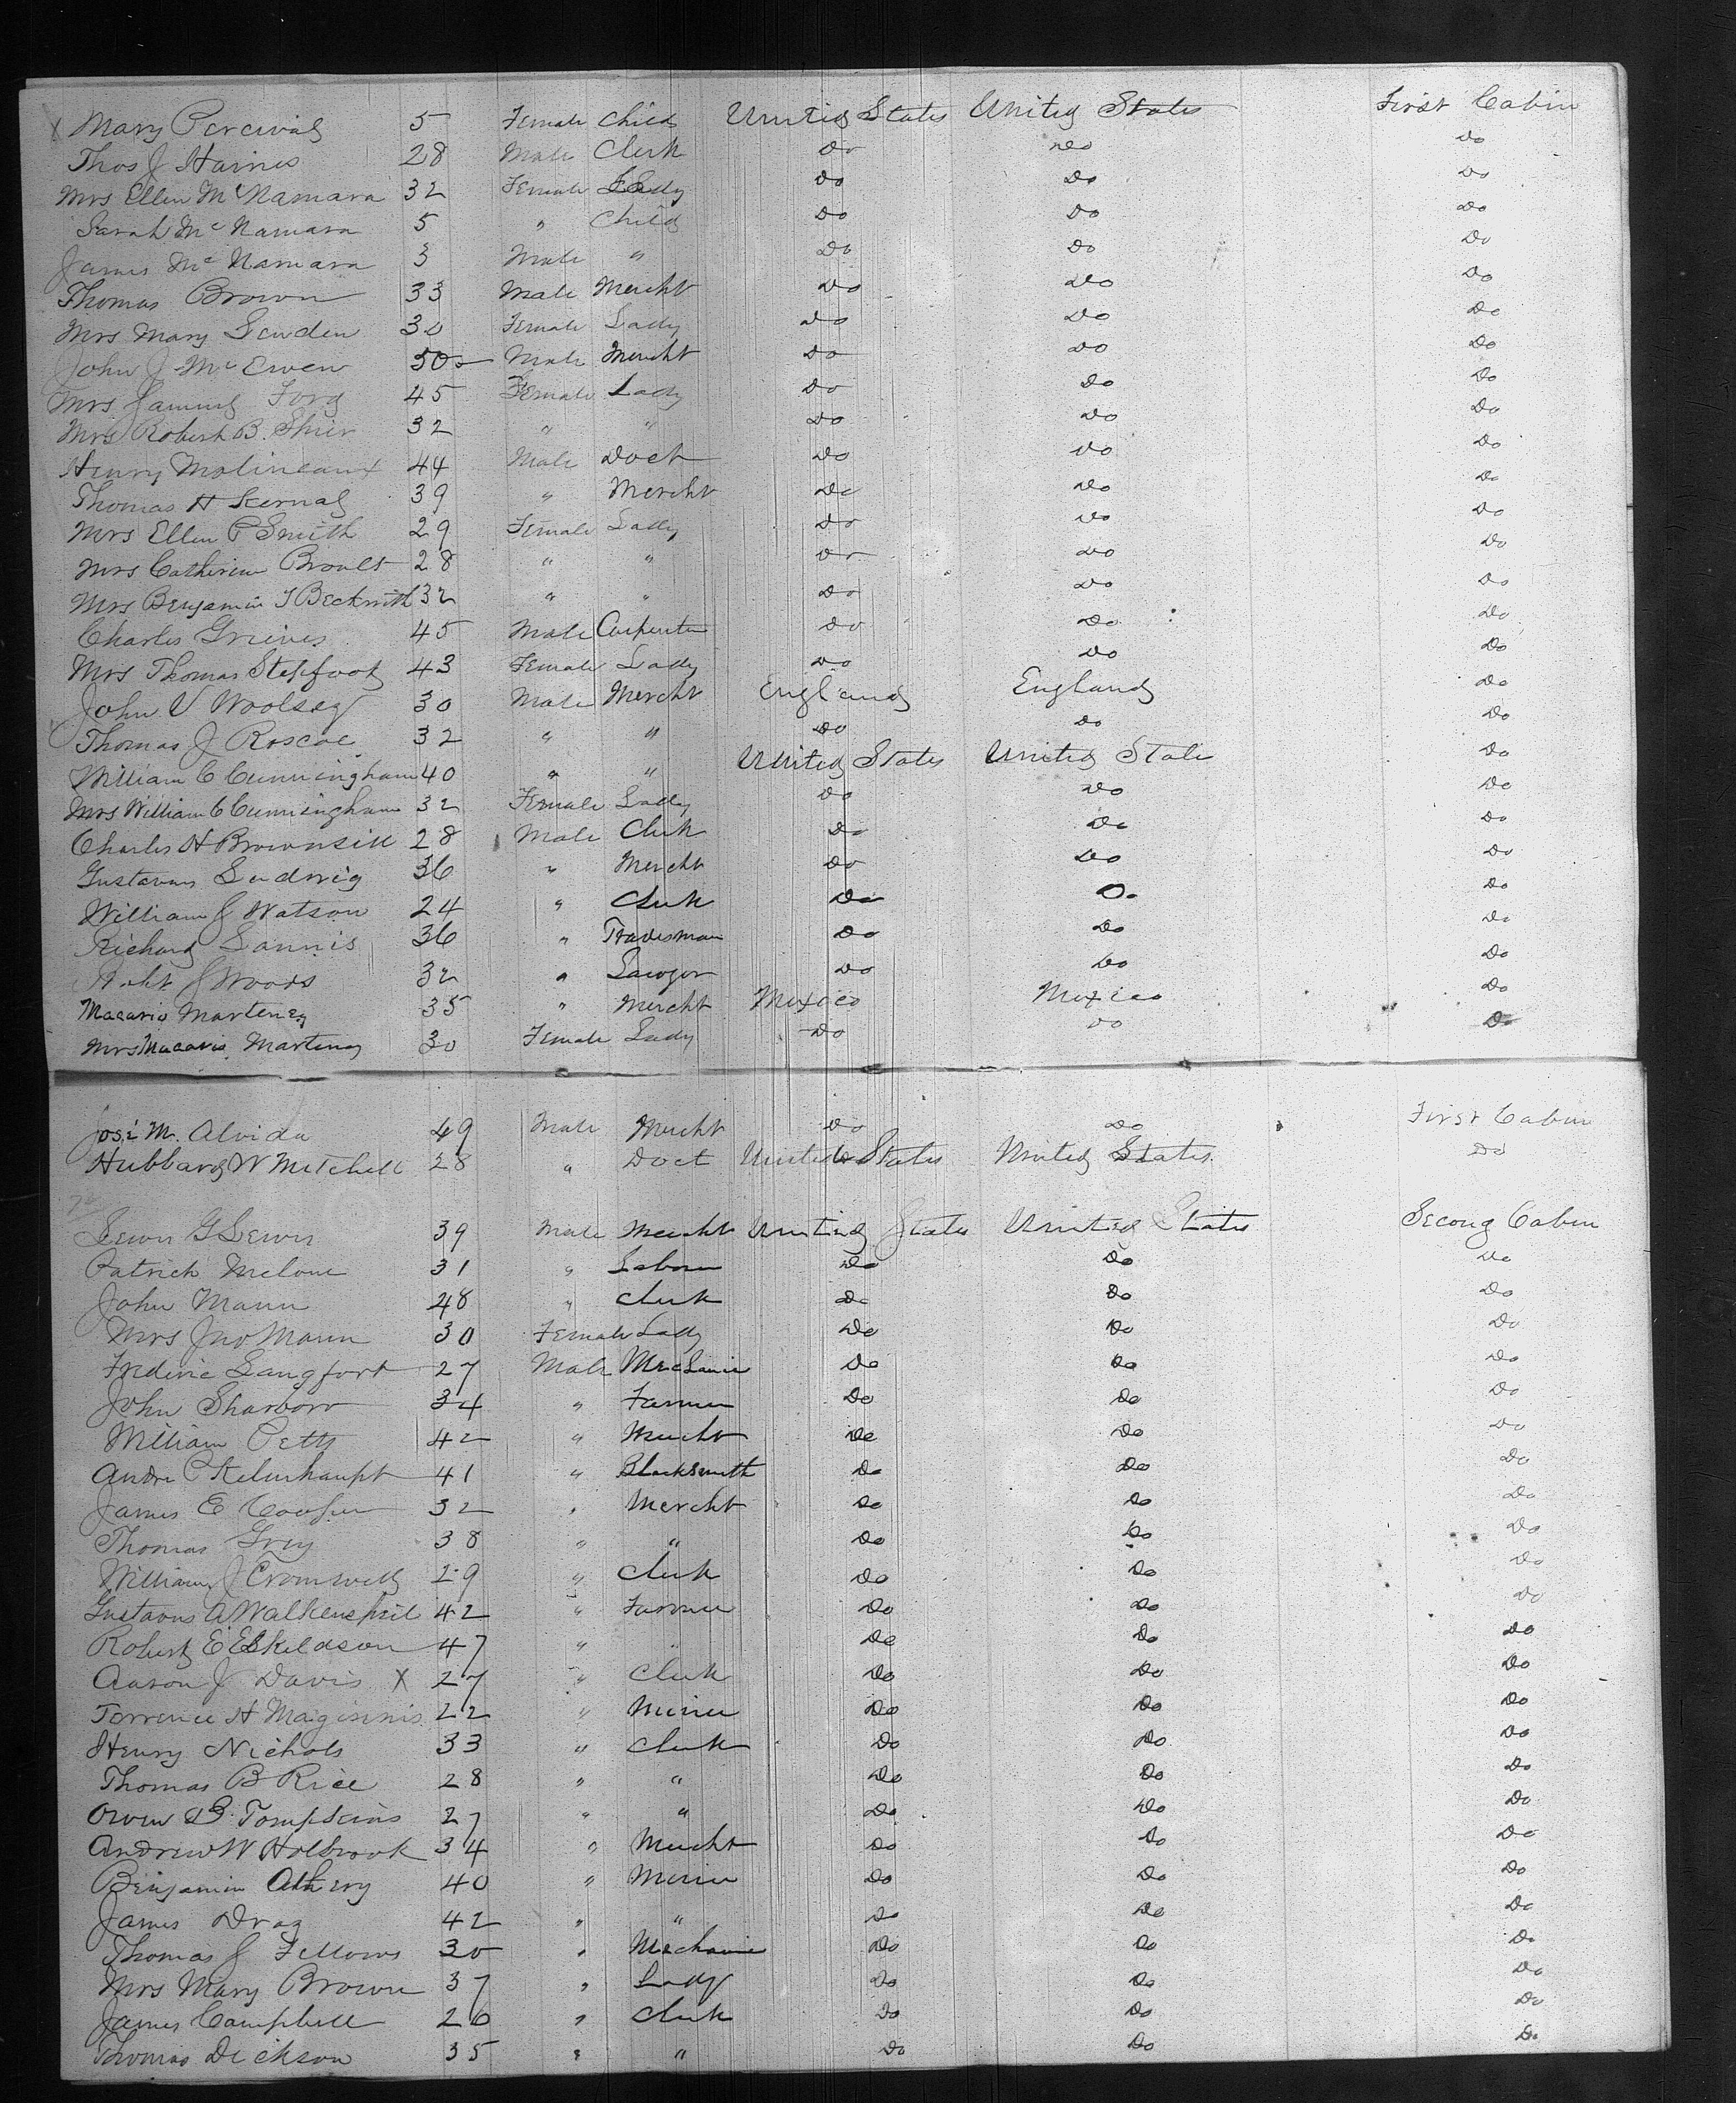 X Mary Percival 5 Female Child United States United States First Cabin
Thos J Haines 28 Male Clerk Do Do Do
Mrs Ellen McNamara 32 Female Lady Do Do Do
Sarah McNamara 5 " Child Do Do Do
James McNamara 3 Male " Do Do Do
Thomas Brown 33 Male Mercht Do Do Do
Mrs Mary 30 Female Lady Do Do Do
John J McEwen 50 Male Mercht Do Do Do
Mrs 45 Female Lady Do Do Do
Mrs Robert B. 32 " " Do Do Do
Henry Molineaux 44 Male Doct Do Do Do
Thomas H 39 " Mercht Do Do Do
Mrs Ellen P Smith 29 Female Lady Do Do Do
Mrs Catherine 28 " " Do Do Do
Mrs Benjamin T Beckwith 32 " " Do Do Do
Charles Grieves 45 Male Carpenter Do Do Do
Mrs Thomas Stepfoot 43 Female Lady Do Do Do
John V Woolsey 30 Male Mercht England England Do
Thomas J Roscoe 32 " " Do Do Do
William C Cunningham 40 " " United States United State Do
Mrs William C Cunningham 32 Female Lady Do Do Do
Charles H Brownsill 28 Male Clerk Do Do Do
Gustavus Ludwig 36 " Mercht Do Do Do
William J Watson 24 " Clerk Do Do Do
Richard Lannis 36 " Tradesman Do Do Do
Robt J Woods 32 " Lawyer Do Do Do
Macario Martenez 35 " Mercht Mexico Mexico Do
Mrs Macario Martinez 30 Female Lady Do Do Do
José M. Alvida 49 Male Mercht Do Do First Cabin
Hubbard W Mitchell 28 " Doct United States United States Do
Lewis G Lewis 39 Male Mercht United States United States Second Cabin
Patrick Melone 31 " Laborer Do Do Do
John Mann 48 " Clerk Do Do Do
Mrs Jno Mann 30 Female Lady Do Do Do
Frederic Langfort 27 Male Mechanic Do Do Do
John Sharboro 34 " Farmer Do Do Do
William Petty 42 " Mercht Do Do Do
Andre P 41 " Blacksmith Do Do Do
James E Cooper 32 " Mercht Do Do Do
Thomas Grey 38 " " Do Do Do
William J Cromwell 29 " Clerk Do Do Do
Gustavus A 42 " Farmer Do Do Do
Robert E Eskildson 47 " " Do Do Do
Aaron J Davis X 27 " Clerk Do Do Do
Terrence H Maginnis 22 " Miner Do Do Do
Henry Nichols 33 " Clerk Do Do Do
Thomas B Rice 28 " " Do Do Do
Tompkins 27 " " Do Do Do
Andrew W Holbrook 34 " Mercht Do Do Do
Benjamin Athery 40 " Miner Do Do Do
James Dray 42 " " Do Do Do
Thomas J Fellows 30 " Mechanic Do Do Do
Mrs Mary Brown 37 " Lady Do Do Do
James Campbell 26 " Clerk Do Do Do
Thomas Dickson 35 " " Do Do Do